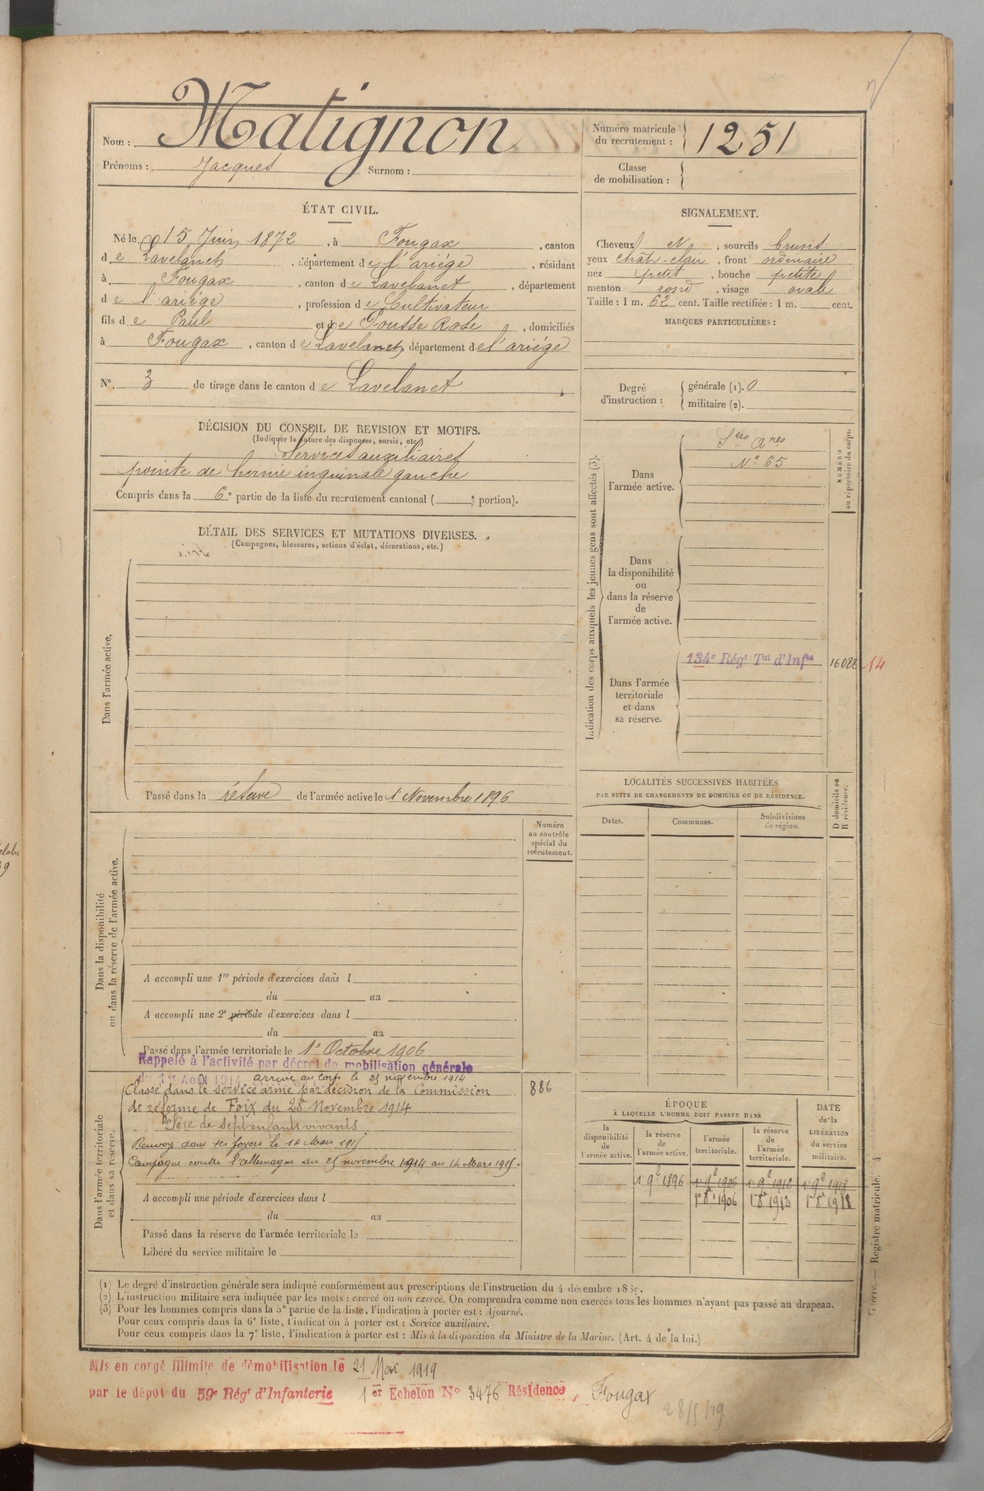 Nom : Matignon
Prénoms : Jacques Surnom :
Numéro matricule du recrutement : 1251
Classe de mobilisation :
ÉTAT CIVIL.
Né le 15 Juin 1872, à Fougax, canton
de Lavelanet, département de l'ariége, résidant
à Fougax, canton de Lavelanet, département
de l'ariége, profession de Cultivateur
fils de Paul et de Pousse Rose, domiciliés
à Fougax, canton de Lavelanet, département de l'ariége
N°. 3 de tirage dans le canton de Lavelanet
SIGNALEMENT.
Cheveux , sourcils bruns
yeux chât. clair, front ordinaire
nez petit, bouche petite
menton rond, visage ovale
Taille : 1 m. 62 cent. Taille rectifiée : 1 m. cent.
MARQUES PARTICULIÈRES :
Degré d'instruction : générale (1). 0
militaire (2).
DÉCISION DU CONSEIL DE REVISION ET MOTIFS.
(Indiquer la nature des dispenses, sursis, etc.)
Services auxiliaires
pointe de hernie inguinale gauche
Compris dans la 6e partie de la liste du recrutement cantonal ( e portion).
DÉTAIL DES SERVICES ET MUTATIONS DIVERSES.
(Campagnes, blessures, actions d'éclat, décorations, etc.)
Dans l'armée active.
Passé dans la réserve de l'armée active le 1 Novembre 1896
Indication des corps auxquels les jeunes gens sont affectés (3).
NUMÉRO au répertoire du corps.
Dans l'armée active.
Ses Ares
N° 65
Dans la disponibilité ou dans la réserve de l'armée active.
Dans l'armée territoriale et dans sa réserve.
134e Régt Tal d'Infie 16088 14
LOCALITÉS SUCCESSIVES HABITÉES
PAR SUITE DE CHANGEMENTS DE DOMICILE OU DE RÉSIDENCE.
D domicile ou R résidence.
Dates. Communes. Subdivisions de région.
Numéro au contrôle spécial du recrutement.
Dans la disponibilité ou dans la réserve de l'armée active.
A accompli une 1re période d'exercices dans l
du au
A accompli une 2e période d'exercices dans l
du au
Passé dans l'armée territoriale le 1er Octobre 1906
Rappelé à l'activité par décret de mobilisation générale
du 1er Août 1914 arrivé au corps le 25 novembre 1914
Dans l'armée territoriale et dans sa réserve.
Classé dans le service armé par décision de la Commission 886
de réforme de Foix du 20 Novembre 1914
Père de sept enfants vivants
Renvoyé dans ses foyers le 14 Mars 1915
Campagne contre l'allemagne du 25 novembre 1914 au 14 Mars 1915.
A accompli une période d'exercices dans l
du au
Passé dans la réserve de l'armée territoriale le
Libéré du service militaire le
ÉPOQUE
À LAQUELLE L'HOMME DOIT PASSER DANS
la disponibilité de l'armée active. la réserve de l'armée active. l'armée territoriale. la réserve de l'armée territoriale.
DATE de la LIBÉRATION du service militaire.
1er 9bre 1896 1er 9bre 1906 1er 9bre 1912 1er 9bre 1918
1er 8bre 1906 1er 8bre 1912 1er 8bre 1918
(1) Le degré d'instruction générale sera indiqué conformément aux prescriptions de l'instruction du 4 décembre 1889.
(2) L'instruction militaire sera indiquée par les mots : exercé ou non exercé. On comprendra comme non exercés tous les hommes n'ayant pas passé au drapeau.
(3) Pour les hommes compris dans la 5e partie de la liste, l'indication à porter est : Ajourné.
Pour ceux compris dans la 6e liste, l'indication à porter est : Service auxiliaire.
Pour ceux compris dans la 7e liste, l'indication à porter est : Mis à la disposition du Ministre de la Marine. (Art. 4 de la loi.)
Guerre. — Registre matricule. 4
Mis en congé illimité de démobilisation le 21 Mai 1919
par le dépôt du 59e Régt d'Infanterie 1er Echelon N° 3476 Résidence, Fougax
28/5/19